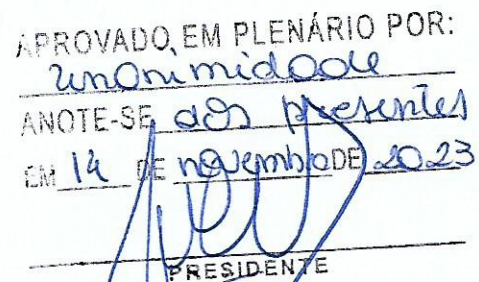 APROVADO EM PLENÁRIO POR:
unanimidade
ANOTE-SE dos presentes
EM 14 DE novembro DE 2023
PRESIDENTE